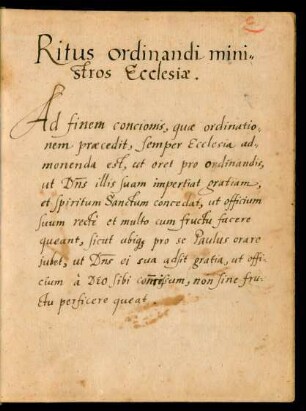 Ritus ordinandi mini-
stros Ecclesiæ.
Ad finem concionis, quæ ordinatio-
nem præcedit, semper Ecclesia ad-
monenda est, ut oret pro ordinandis,
ut Dñs illis suam impertiat gratiam,
et Spiritum Sanctum concedat, ut officium
suum rectè et multo cum fructu facere
queant, sicut ubiq; pro se Paulus orare
jubet, ut Dñs ei sua adsit gratia, ut offi-
cium à DEO sibi comissum, non sine fru-
ctu perficere queat.